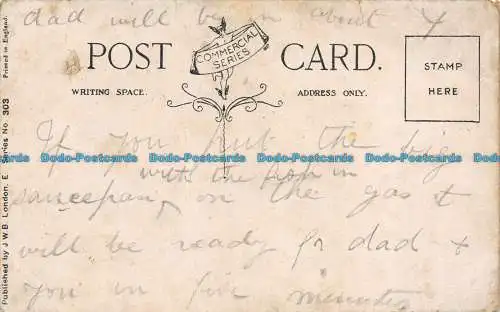 dad will be in about 7
POST CARD.
COMMERCIAL SERIES
WRITING SPACE.
ADDRESS ONLY.
STAMP HERE
If you put the big
saucepan, with the in
on the gas it
will be ready for dad +
you in five minutes
Published by J.W.B. London, E Series No. 303 Printed in England.
Dodo-Postcards Dodo-Postcards Dodo-Postcards Dodo-Postcards
Dodo-Postcards Dodo-Postcards Dodo-Postcards Dodo-Postcards